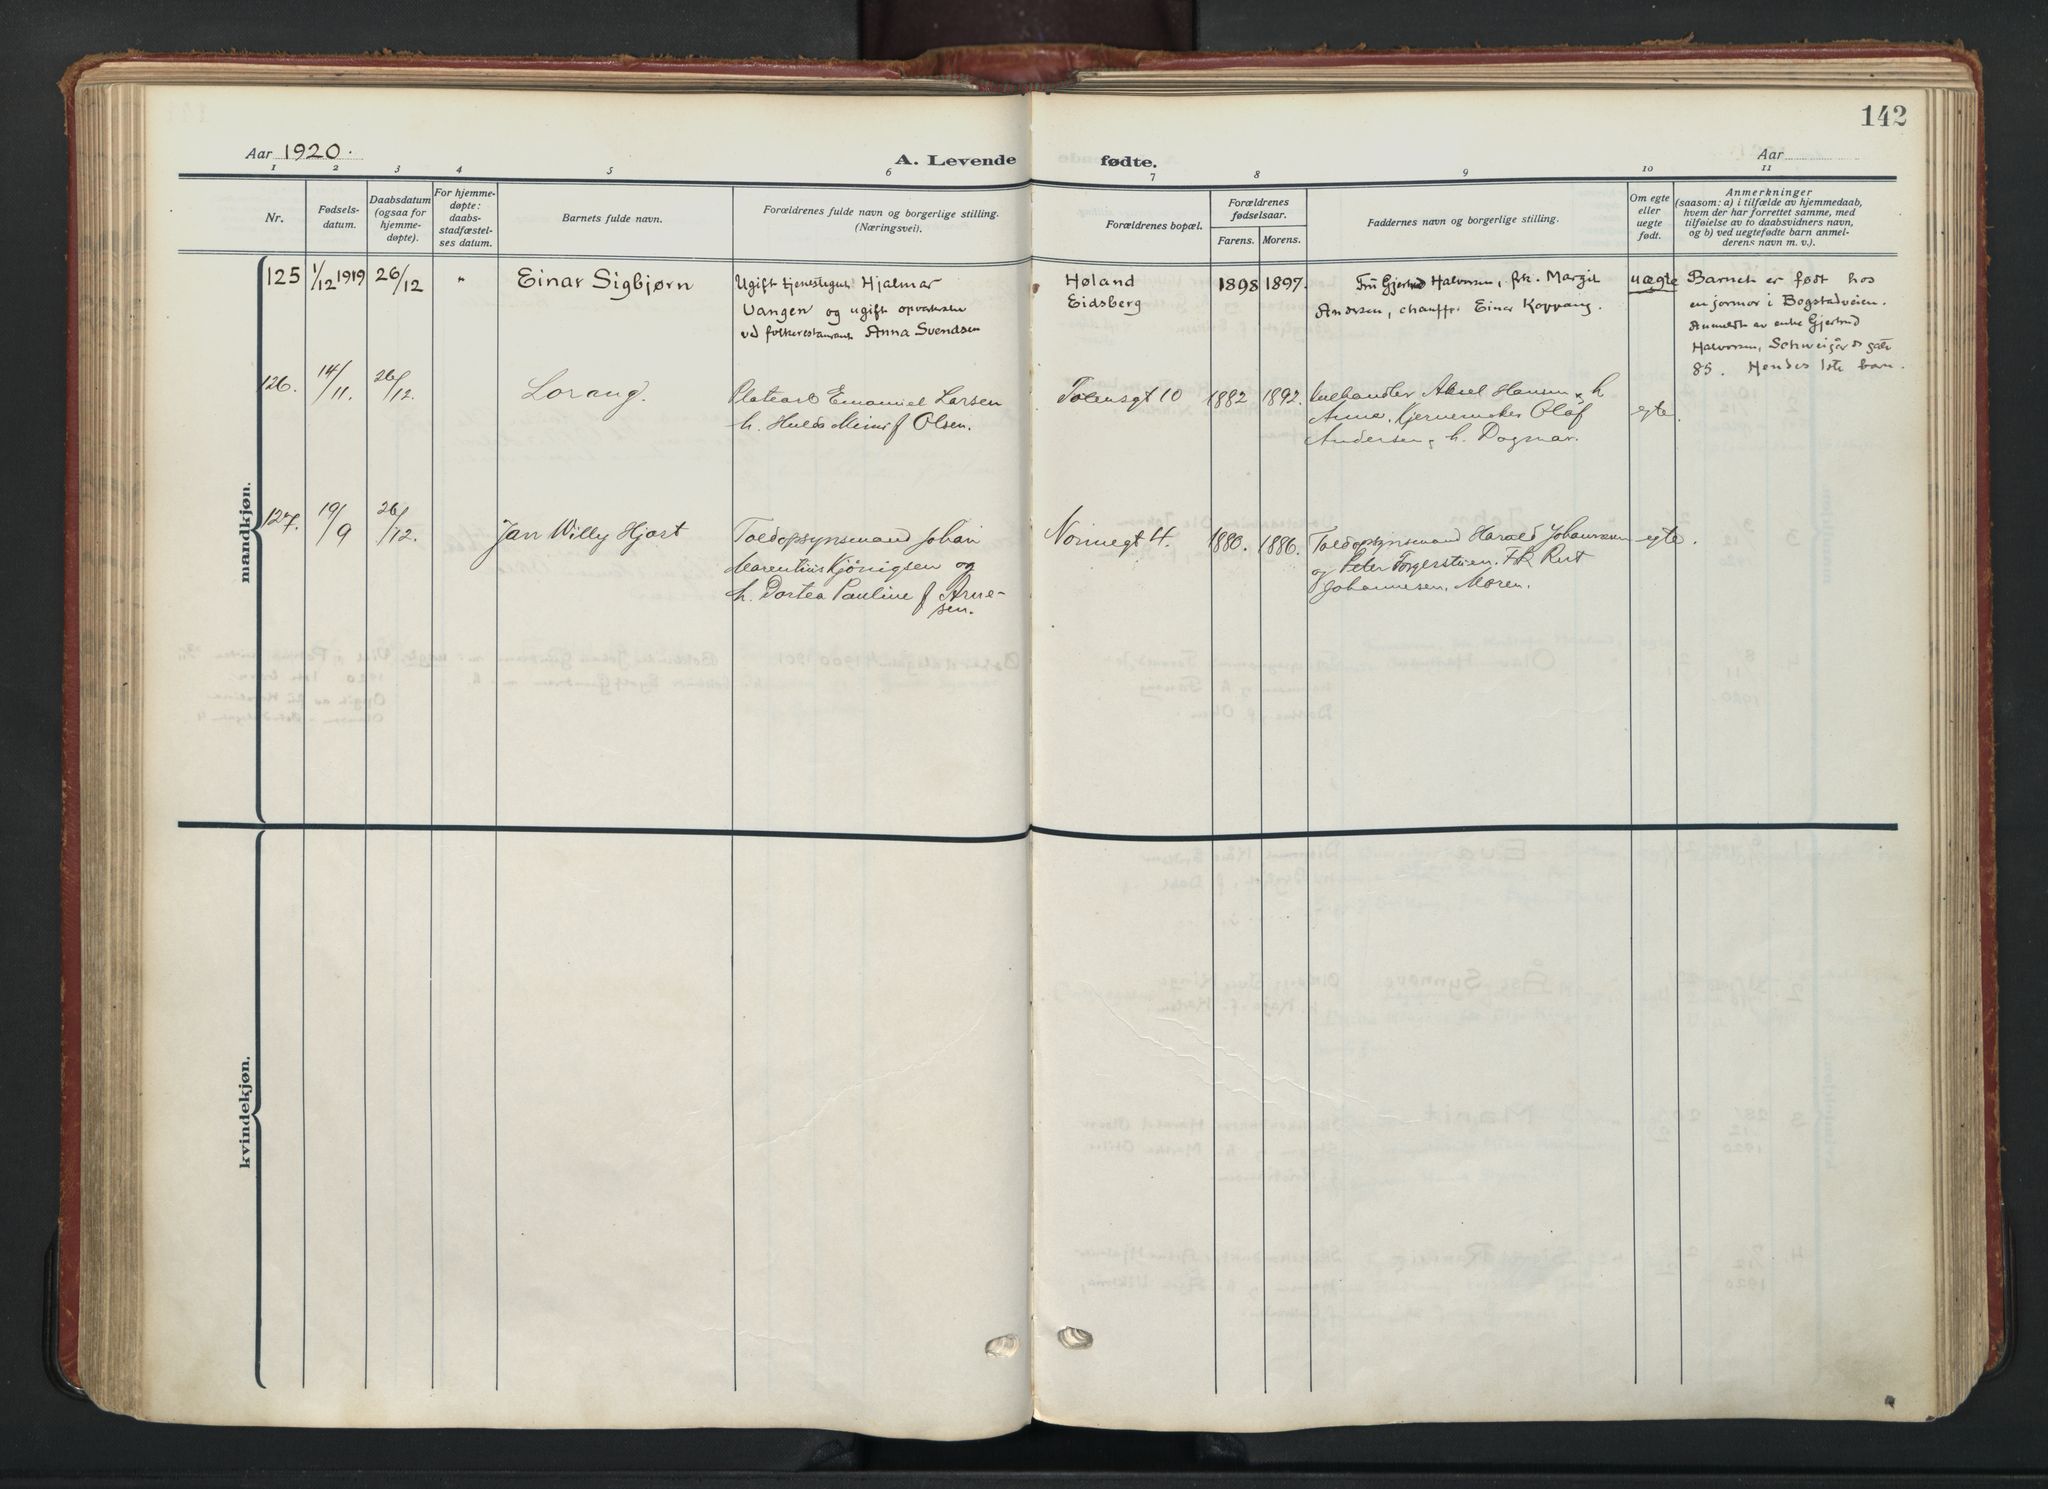 142
Aar 1920.
A. Levende fødte.
Aar
1 2 3 4 5 6 7 8 9 10 11
Nr.
Fødsels-
datum.
Daabsdatum
(ogsaa for
hjemme-
døpte).
For hjemme-
døpte:
daabs-
stadfæstel-
ses datum.
Barnets fulde navn.
Forældrenes fulde navn og borgerlige stilling.
(Næringsvei).
Forældrenes bopæl.
Forældrenes
fødselsaar.
Farens. Morens.
Faddernes navn og borgerlige stilling.
Om egte
eller
uegte
født.
Anmerkninger
(saasom: a) i tilfælde av hjemmedaab,
hvem der har forrettet samme, med
tilføielse av to daabsvidners navn,
og b) ved uegtefødte barn anmel-
derens navn m. v.).
mandkjøn.
125 1/12 1919 26/12 " Einar Sigbjørn
Ugift Hjalmar
Vangen og ugift
ved Anna Svendsen
Høland
Eidsberg
1898 1897.
Fru Gjertrud Halvorsen, frk. Margit
Andersen, chauffør Einar Koppang.
uægte
Barnet er født hos
en jormor i Bogstadveien.
Anmeldt av enke Gjertrud
Halvorsen, Schweigårds gate
85. Hendes 1ste barn.
126. 14/11. 26/12. Lorang.
Emanuel Larsen
h. Hulda f Olsen.
Toiensgt 10
1882 1892.
Aksel Hansen & h
Anna. Olaf
Andersen & h. Dagmar.
egte.
127. 19/9 26/12. Jan Willy Hjort
Toldopsynsmand Johan
Marentius Kjönigsen og
h. Dortea Pauline f Arne-
sen.
Normegt 4.
1880. 1886.
Toldopsynsmand Harald Johannesen
og Peter Torgerstuen. Frk Rut
Johannesen, Moren.
egte.
kvindekjøn.